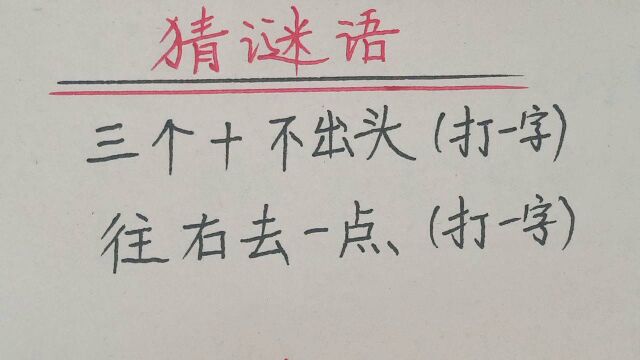 猜谜语
三个十不出头(打一字)
往右去一点、(打一字)